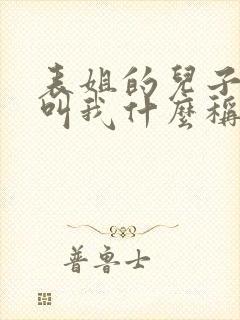 表姐的兒子
叫我什麼稱
普魯士